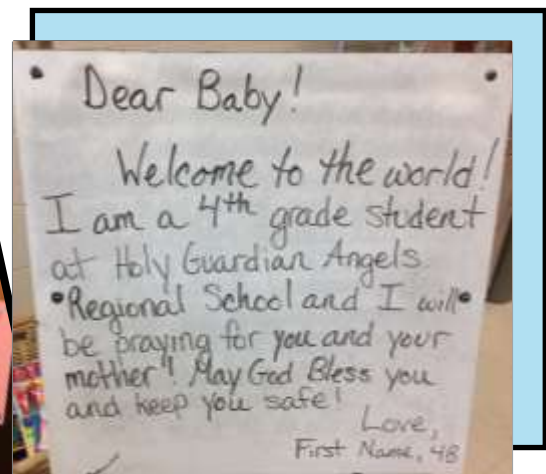 Dear Baby!
Welcome to the world!
I am a 4th grade student
at Holy Guardian Angels
Regional School and I will
be praying for you and your
mother! May God Bless you
and keep you safe!
Love,
First Name, 4B